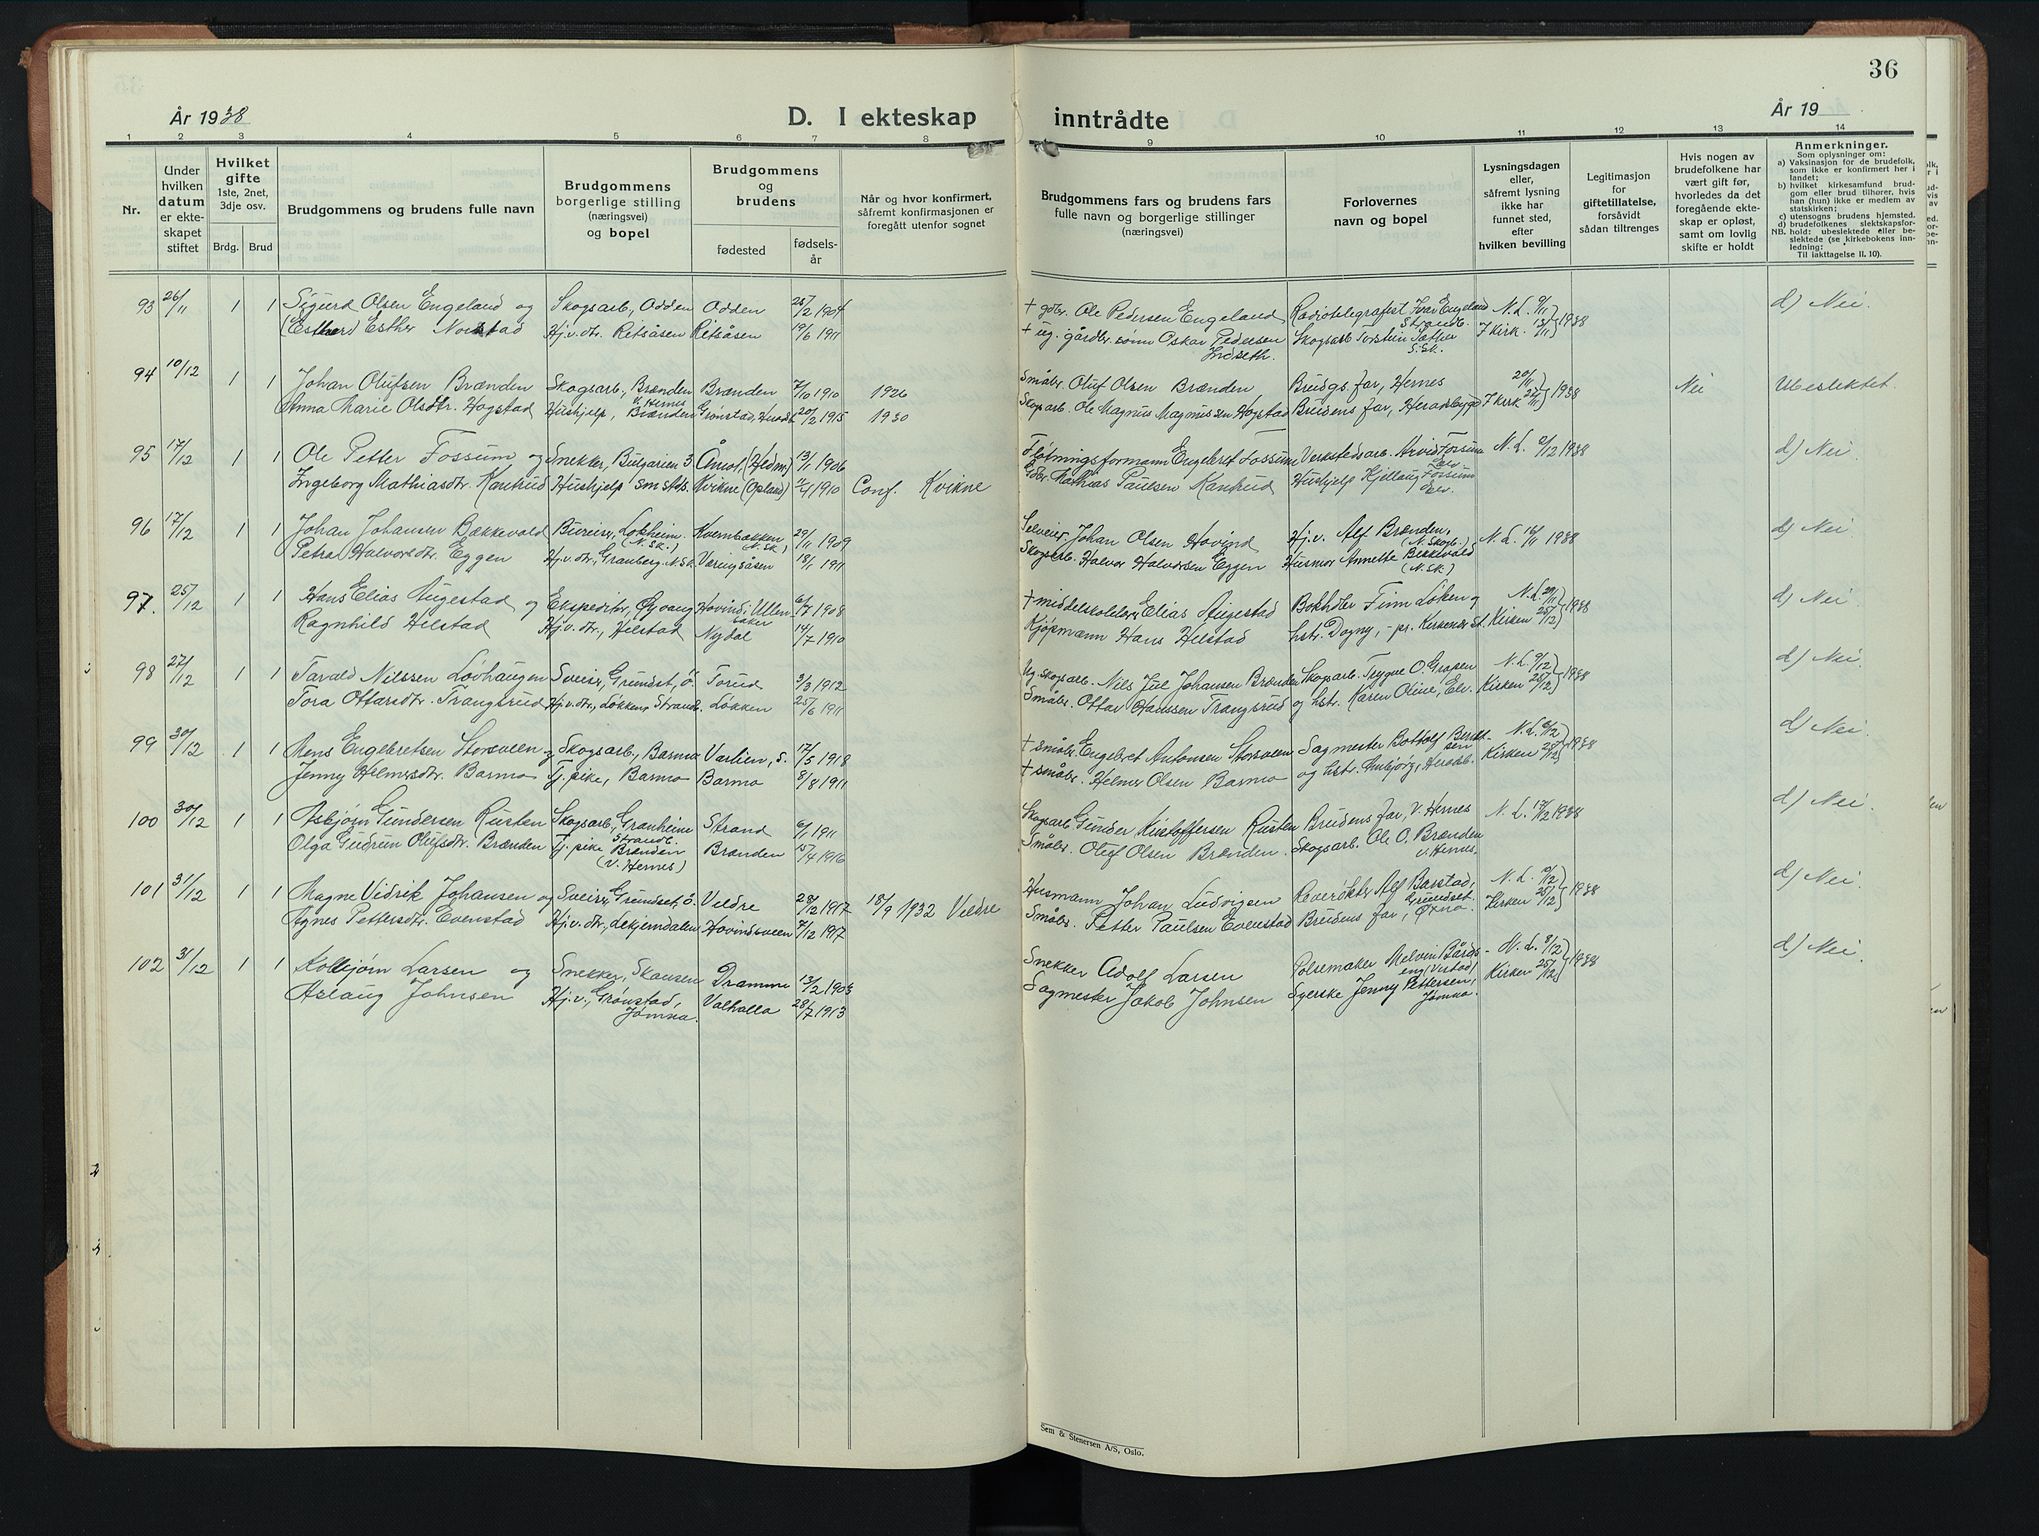 36
År 1938
D. I ekteskap inntrådte
År 19
1 2 3 4 5 6 7 8 9 10 11 12 13 14
Nr.
Under hvilken datum er ekteskapet stiftet
Hvilket gifte 1ste, 2net, 3dje osv.
Brdg. Brud
Brudgommens og brudens fulle navn
Brudgommens borgerlige stilling (næringsvei) og bopel
Brudgommens og brudens
fødested
fødselsår
Når og hvor konfirmert, såfremt konfirmasjonen er foregått utenfor sognet
Brudgommens fars og brudens fars fulle navn og borgerlige stillinger (næringsvei)
Forlovernes navn og bopel
Lysningsdagen eller, såfremt lysning ikke har funnet sted, efter hvilken bevilling
Legitimasjon for giftetillatelse, forsåvidt sådan tiltrenges
Hvis nogen av brudefolkene har vært gift før, hvorledes da det foregående ekteskap er opløst, samt om lovlig skifte er holdt
Anmerkninger.
Som oplysninger om:
a) Vaksinasjon for de brudefolk, som ikke er konfirmert her i landet;
b) hvilket kirkesamfund brudgom eller brud tilhører, hvis han (hun) ikke er medlem av statskirken;
c) utensogns brudens hjemsted.
d) brudefolkenes slektskapsforhold: ubeslektede eller beslektede (se kirkebokens innledning:
NB.
Til iakttagelse II. 10).
93 26/11 1 1 Sigurd Olsen Engeland og Skogsarb., Odden Odden 25/2 1904 + gdbr. Ole Pedersen Engeland Radiotelegrafist Ivar Engeland Strandb. N.L. 9/11 d) Nei.
(Esther) Esther Norstad Hj.v.dtr. Retsåsen Retsåsen 19/6 1911 + ug. gårdbr. sønn Oskar Pedersen Indseth. Skogsarb Torstein Sæther S.Sk. I Kirk. 13/11 1938
94 10/12 1 1 Johan Olufsen Brænden Skogsarb., Brænden V. Hernes Brænden 7/10 1910 1926 Småbr. Oluf Olsen Brænden Brudgs. far, Hernes 20/11 Nei Ubeslektet.
Anna Marie Olsdtr. Hogstad Hushjelp, Brænden Grønstad, 20/2 1915 1930 Skogsarb. Ole Magnus Magnussen Hogstad Brudens far, Heradsbygd I Kirk 27/11 1938
95 17/12 1 1 Ole Petter Fossum og Snekker, Bulgarien 3 Åmot, (Hedm.) 13/1 1906 Fløtningsformann Engebret Fossum Verkstedsarb. Arvid Fossum Elv. N.L. 9/12 1938 d) Nei.
Ingeborg Mathiasdtr. Kanrud Hushjelp smstds. Kvikne (Opland) 2/4 1910 Conf. Kvikne Gdbr. Mathias Paulsen Kanrud Hushjelp Kjellaug Fossum Elv.
96 17/12 1 1 Johan Johansen Bækkevold Bureiser, Lokheim (N.Sk.) Kvernbækken (N.Sk.) 29/11 1909 Selveier Johan Olsen Hovind Hj.v. Alf Brænden, (N. Skogb.) N.L. 16/11 1938 d) Nei.
Petra Halvorsdtr. Eggen Hj.v.dtr., Granberg, N.Sk. Væringsåsen 18/1 1911 Skogsarb. Halvor Halvorsen Eggen Husmor Annette Bekkevold (N.Sk.)
97. 25/12 1 1 Hans Elias Augestad og Ekspeditør, Øgvang Hovind i Ullensaker 6/7 1908 + middelskolelærer Elias Augestad Bokholder Finn Løken og N.L. 29/11 d) Nei.
Ragnhild Hilstad Hj.v.dtr., Hilstad Nydal 14/7 1910 Kjøpmann Hans Hilstad hstr. Dagny, - pr. Kirkenær St. Kirken 25/12 1938
98 27/12 1 1 Tarald Nilssen Løvhaugen Sveiser, Grundset, ö. Torud 3/3 1912 Ug. Skogsarb. Nils Jul Johansen Brænden Skogsarb. Trygve O. Grasen N.L. 9/12 d) Nei.
Tora Ottarsdtr. Trangsrud Hj.v.dtr., Løkken, Strandb. Løkken 25/6 1911 Småbr. Ottar Hanssen Trangsrud og hstr. Karen Oline, Elv. Kirken 25/12 1938
99 30/12 1 1 Mens Engebretsen Storsveen og Skogsarb., Barmo Varlien, S. 17/5 1918 + småbr. Engebret Antonsen Storsveen Sagmester Bottolf Berntsen N.L. 9/12 d) Nei.
Jenny Helmersdtr. Barmo Tj. pike, Barmo Barmo 8/8 1911 + småbr. Helmer Olsen Barmo og hstr. Anbjørg, Heradsb. Kirken 25/12 1938
100 30/12 1 1 Asbjørn Gundersen Rusten Skogsarb., Granheim Strandb. Strand 6/1 1911 Skogsarb. Gunder Kristoffersen Rusten Brudens far, V. Hernes N.L. 17/12 1938 d) Nei.
Olga Gudrun Olufsdtr. Brænden Tj. pike Brænden (V. Hernes) Brænden 15/4 1916 Småbr. Oluf Olsen Brænden. Skogsarb. Ole O. Brænden V. Hernes.
101 31/12 1 1 Magne Vidrik Johansen og Sveiser, Grundset, ö. Veldre 28/12 1917 18/9 1932 Veldre Husmann Johan Ludvigsen Reverøkter Alf Barstad, Grundset. N.L. 10/12 d) Nei.
Agnes Pettersdtr. Evenstad Hj.v.dtr., Lekjerndalen Hovindsveen 7/12 1917 Småbr. Petter Paulsen Evenstad Brudens far, Øxna. Kirken 25/12 1938
102 31/12 1 1 Kolbjørn Larsen og Snekker, Skansen Drammen 13/2 1908 Snekker Adolf Larsen Pølsemaker Melvin Bårdseng (Vestad) N.L. 9/12 d) Nei.
Aslaug Johnsen Hj.v., Grønstad, Jømna. Valhalla 28/7 1913 Sagmester Jakob Johnsen Syerske Jenny Pettersen, Jømna. Kirken 25/12 1938
Sem & Stenersen A/S, Oslo.